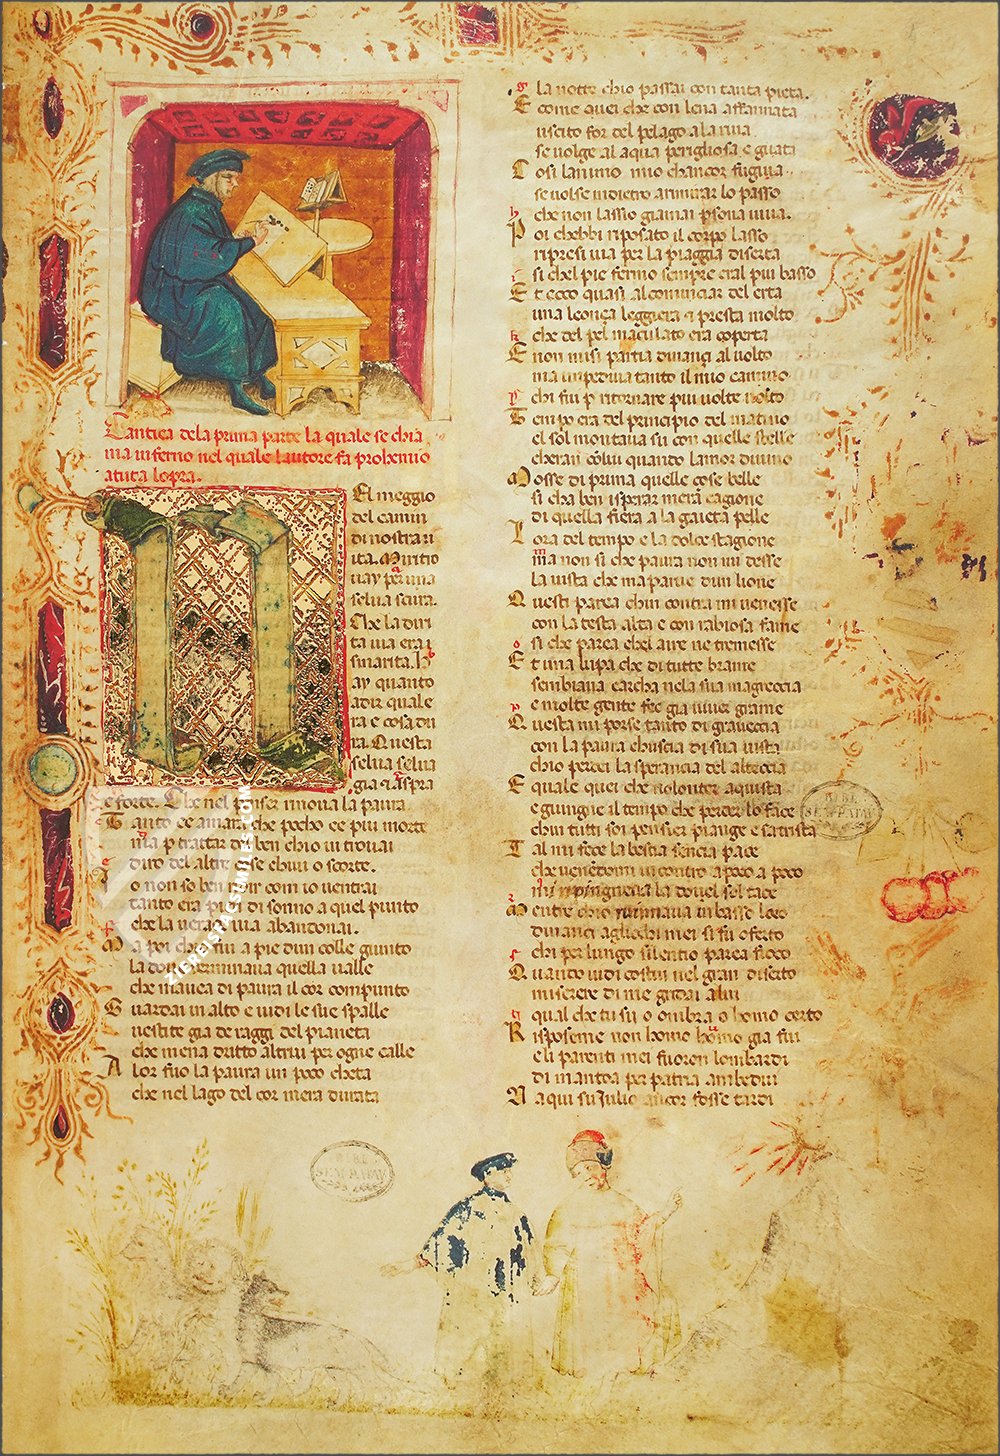 Cantica dela prima parte la quale se chia
ma inferno nel quale lautore fa prohemio
a tuta lopra.
El meggio
del camin
di nostra ui
ita. Mi ritro
uay per una
selua scura.
Che la diri
ta uia era i
smarita. H
ay quanto
a dir quale
ra e cosa du
ra. Questa
selua selua
gia & aspra
e forte. Che nel penser rinoua la paura
Tanto e amara che pocho e piu morte
ma p trattar del ben chio ui trouai
diro del altre cose chiui o scorte.
Io non so ben ridir com io uentrai
tanto era pien di sonno a quel punto
che la uerace uia abandonai.
Ma poi chio fui a pie dun colle giunto
la doue terminaua quella ualle
che mauea di paura il cor compunto
Guardai in alto e uidi le sue spalle
uestite gia de raggi del pianeta
che mena dritto altrui per ogne calle
Alor fuo la paura un poco cheta
che nel lago del cor mera durata
la notte chio passai con tanta pieta.
E come quei che con lena affannata
uscito for del pelago a la riua
se uolge al aqua perigliosa e guata
Cosi lanimo mio chancor fugiua
se uolse indietro a rimirar lo passo
che non lassio giamai psona uiua.
Poi chebbi riposato il corpo lasso
ripresi uia per la piaggia diserta
si chel pie fermo sempre eral piu basso
Et ecco quasi al cominciar del erta
una leonça leggiera & presta molto
che del pel maculato era coperta
E non misi partia dinançi al uolto
ma impediua tanto il mio camino
chi fui p ritornare piu uolte uolto
Tempo era del principio del matino
el sol montaua su con quelle stelle
cheran colui quando lamor diuino
Mosse di prima quelle cose belle
si cha ben isperar mera cagione
di quella fiera a la gaieta pelle
Lora del tempo e la dolce stagione
ma non si che paura non mi desse
la uista che maparue dun lione
Questi parea chin contra mi uenisse
con la testa alta e con rabiosa fame
si che parea chel aire ne tremesse
Et una lupa che di tutte brame
sembiaua carcha nela sua magreccia
e molte gente fee gia uiuer grame
Questa mi porse tanto di graueccia
con la paura chuscia di sua uista
chio perdei la sperancia del alteccia
E quale quei che uolonter aquista
e giungne il tempo che perder lo face
chin tutti soi pensier piange e satrista
Tal mi fece la bestia sencia pace
che uenendomi in contro a poco a poco
mi ripingneua la douel sol tace
Mentre chio ruinaua in basso loco
dinanci agliochi mei si fu oferto
chi per lungo silentio parea fioco
Quando uidi costui nel gran diserto
miserere di me gridai a lui
qual che tu sii o ombra o homo certo
Risposeme non homo homo gia fui
e li parenti mei fuoron lombardi
di mantoa per patria ambedui
Naqui su Julio ancor fosse tardi
BIBL
SEM. PATAV
BIBL
SEM. PATAV